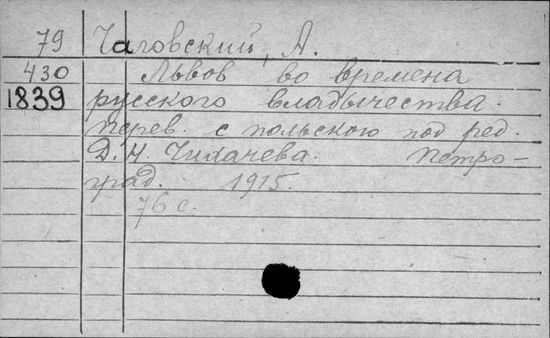 79 Чаговский, А.
430 Львов во времена
1839 русского владычества.
перев. с польскою под ред.
Д. Н. Чихачева. Петро-
град. 1915.
76 с.